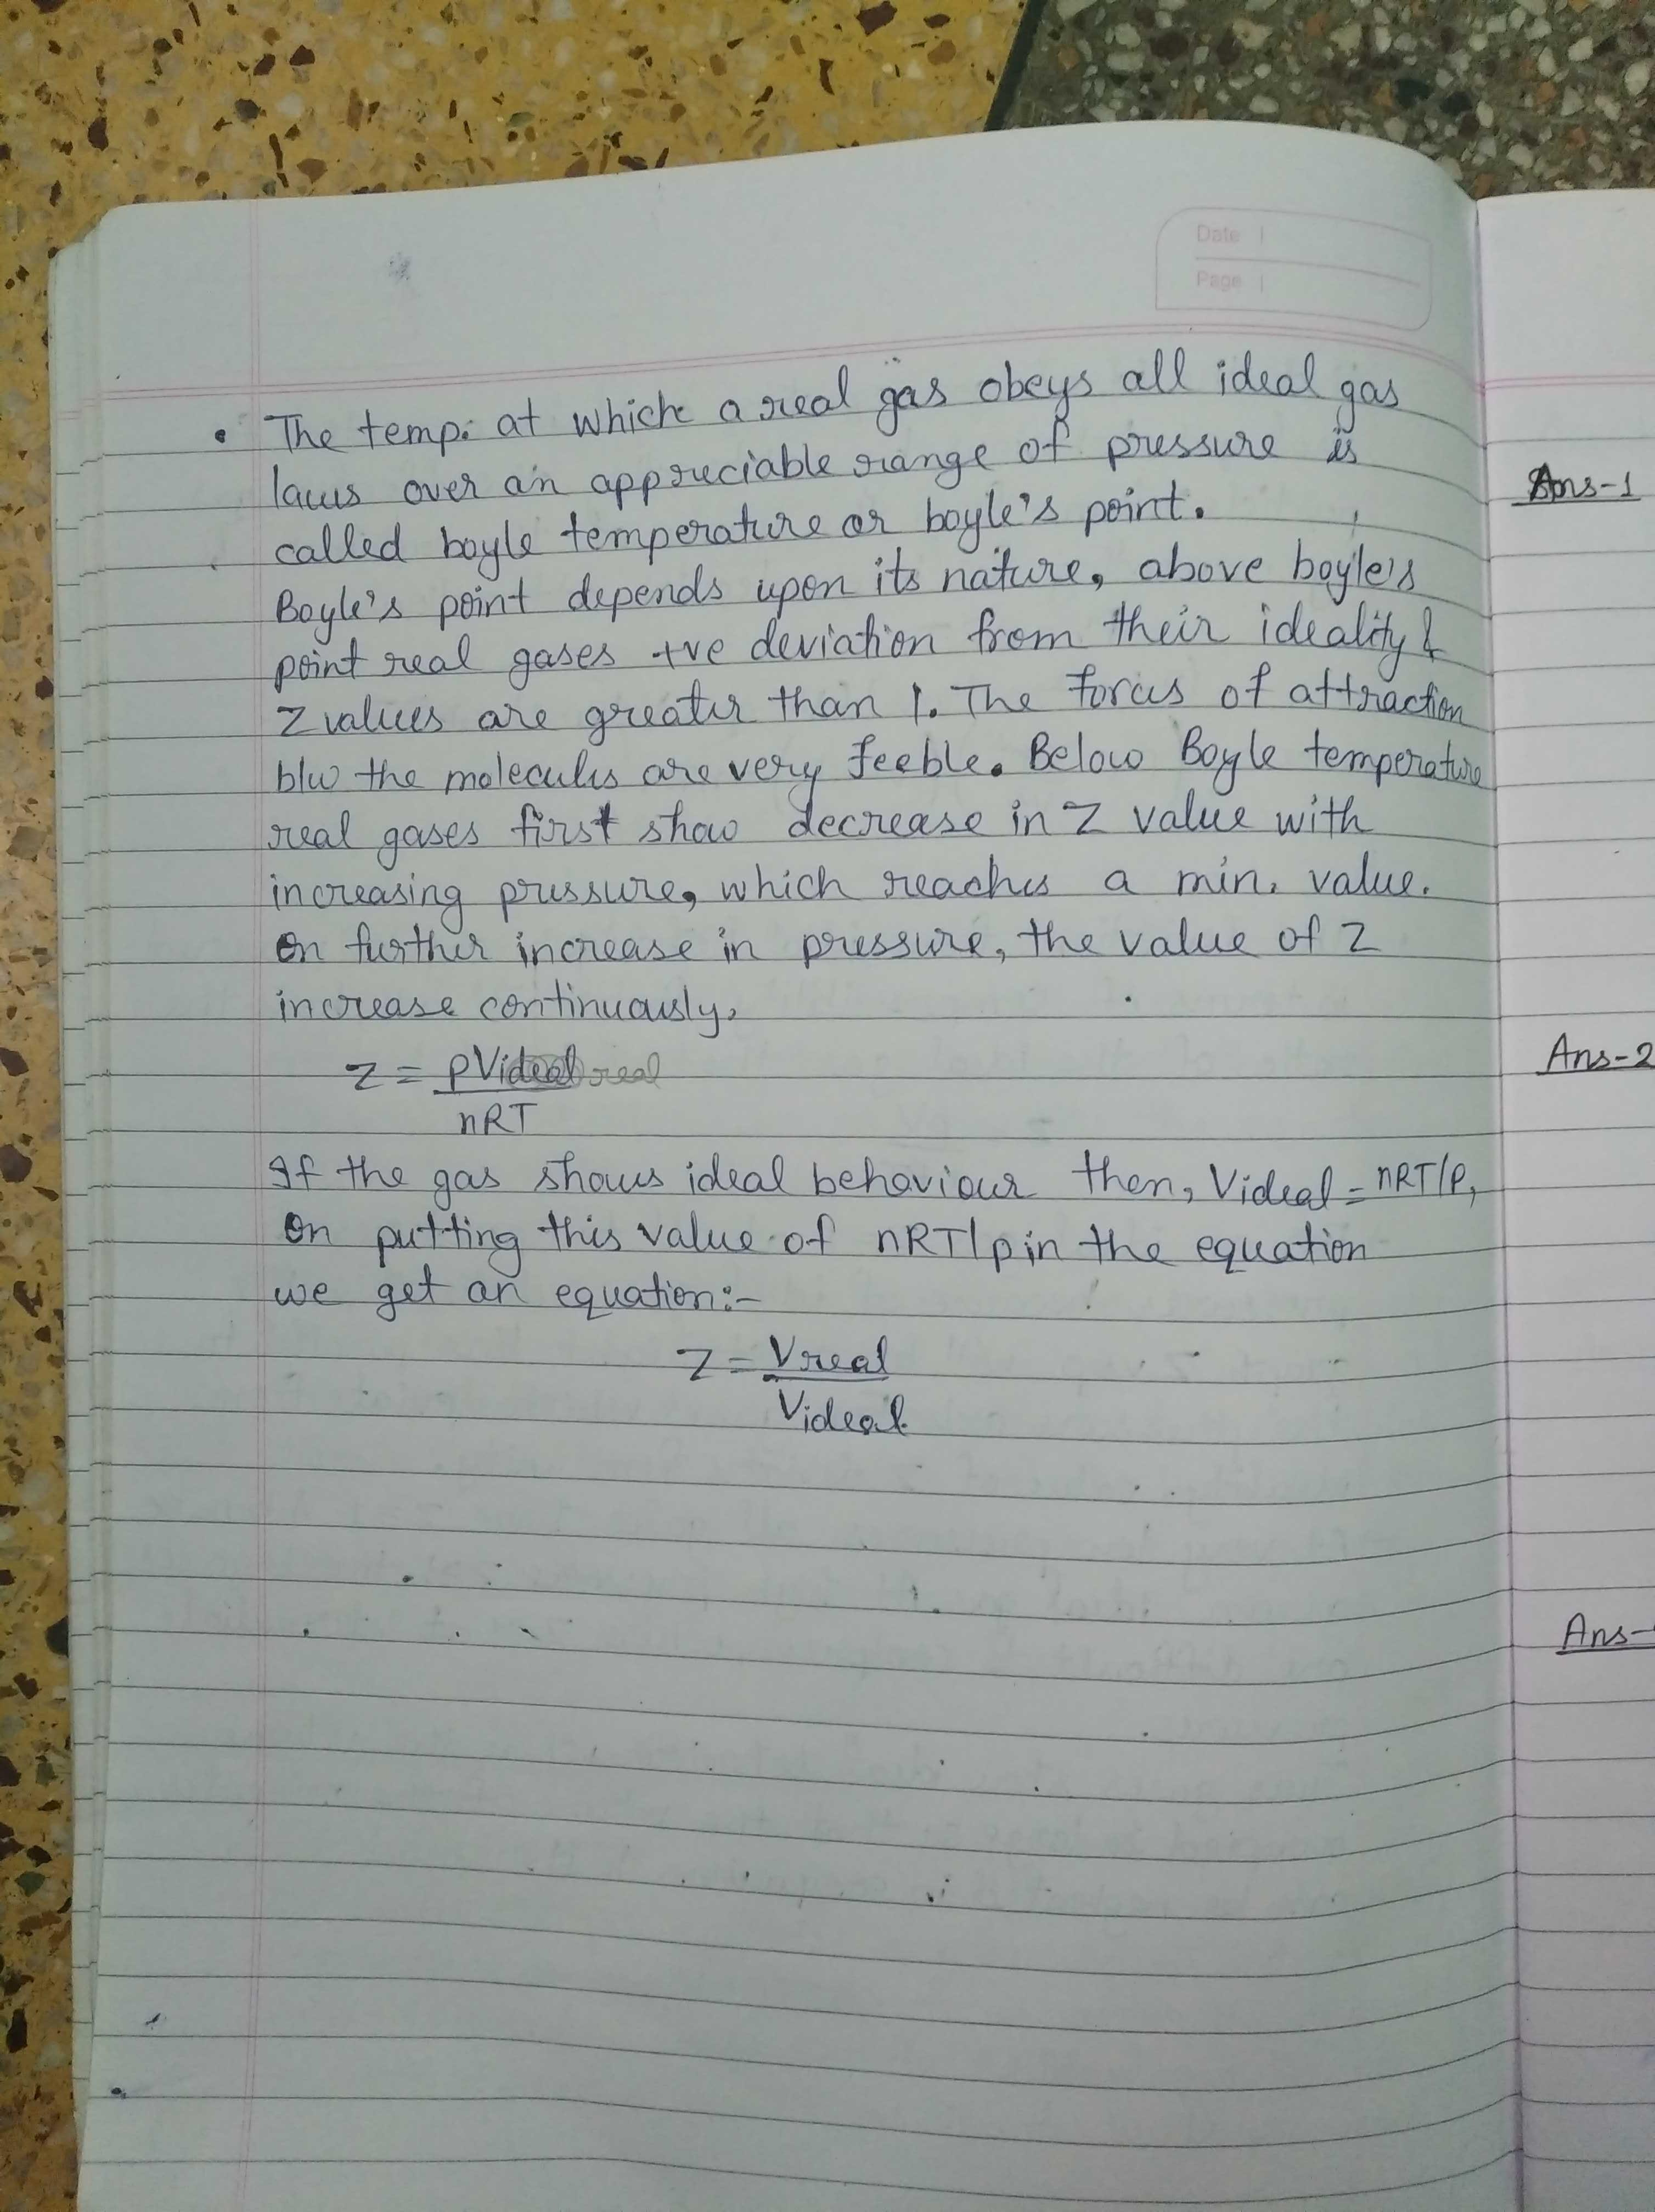 Date
Page
• The temp. at which a real gas obeys all ideal gas
laws over an appreciable range of pressure is
called boyle temperature or boyle's point.
Boyle's point depends upon its nature, above boyle's
point real gases +ve deviation from their ideality &
Z values are greater than 1. The forces of attraction
b/w the molecules are very feeble. Below Boyle temperature
real gases first show decrease in Z value with
increasing pressure, which reaches a min. value.
On further increase in pressure, the value of Z
increase continuously,
Z = PVreal
nRT
If the gas shows ideal behaviour then, Videal = nRT/P,
On putting this value of nRT/p in the equation
we get an equation:-
Z = Vreal
Videal
Ans-1
Ans-2
Ans-